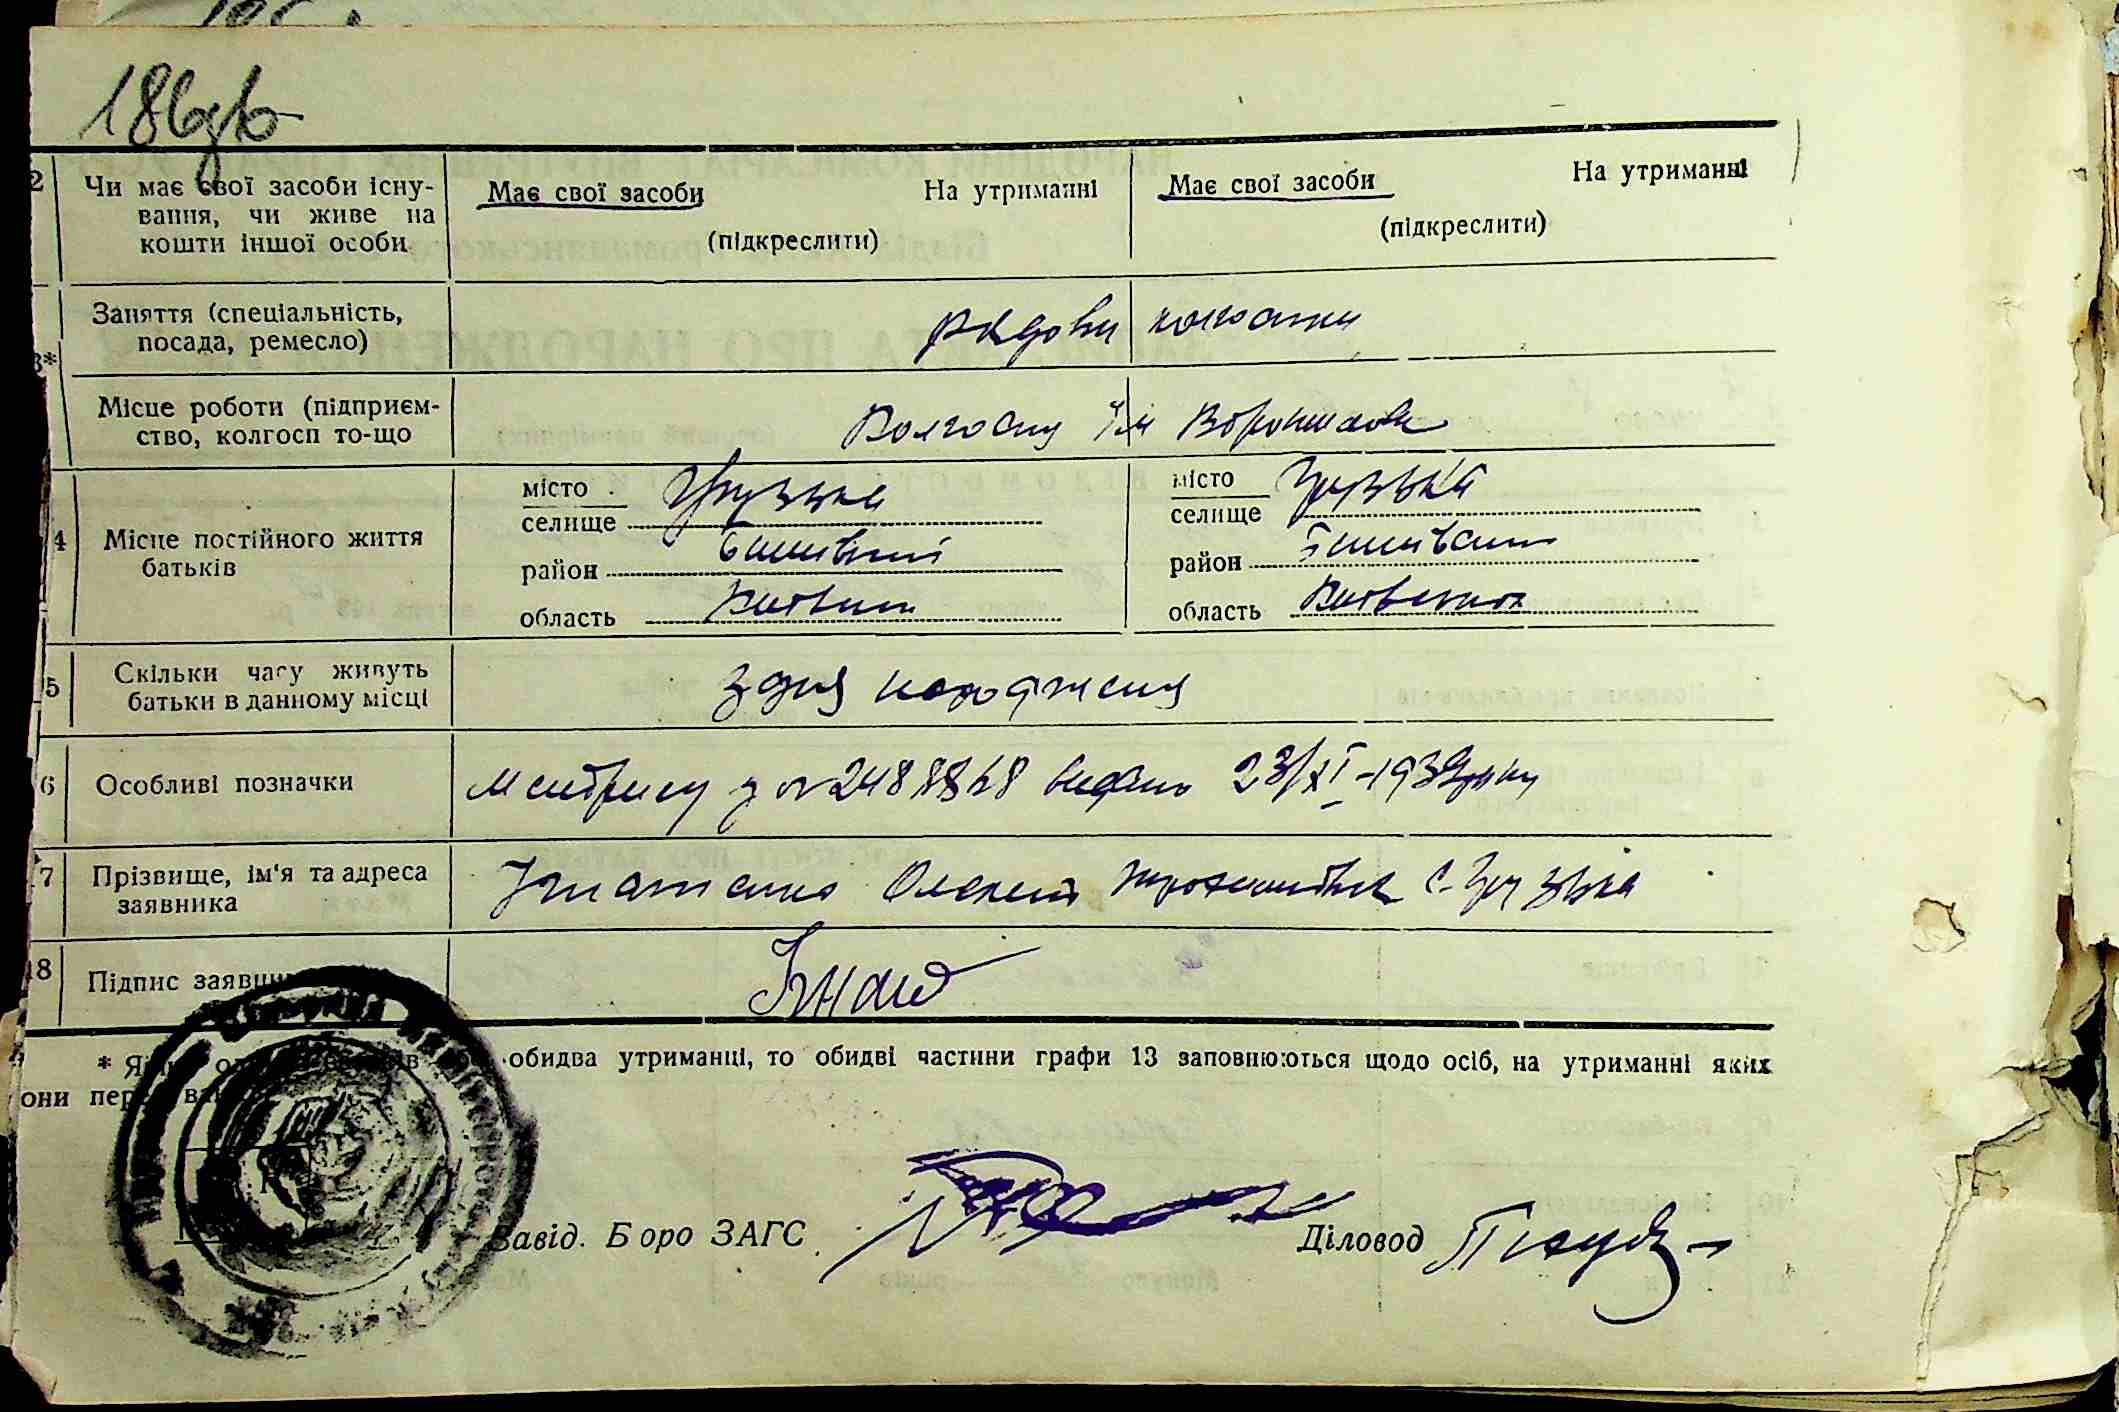 186зв
2 Чи має свої засоби існування, чи живе на кошти іншої особи
Має свої засоби На утриманні
(підкреслити)
Має свої засоби На утриманні
(підкреслити)
3* Заняття (спеціальність, посада, ремесло)
рядові колгоспники
Місце роботи (підприємство, колгосп то-що
Колгосп ім Ворошилова
4 Місце постійного життя батьків
місто
селище Грузьке
район
область Київська
місто
селище Грузьке
район
область Київська
5 Скільки часу живуть батьки в данному місці
З дня народження
6 Особливі позначки
Метрику за № видано 23/XI-1939 року
7 Прізвище, ім'я та адреса заявника
Ігнатенко Олексій с. Грузьке
18 Підпис заявн
Ігнат
* Я обидва утриманці, то обидві частини графи 13 заповнюються щодо осіб, на утриманні яких
они пере
Завід. Бюро ЗАГС
Діловод